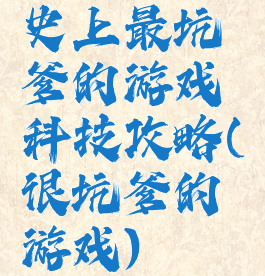 史上最坑
爹的游戏
科技攻略(
很坑爹的
游戏)